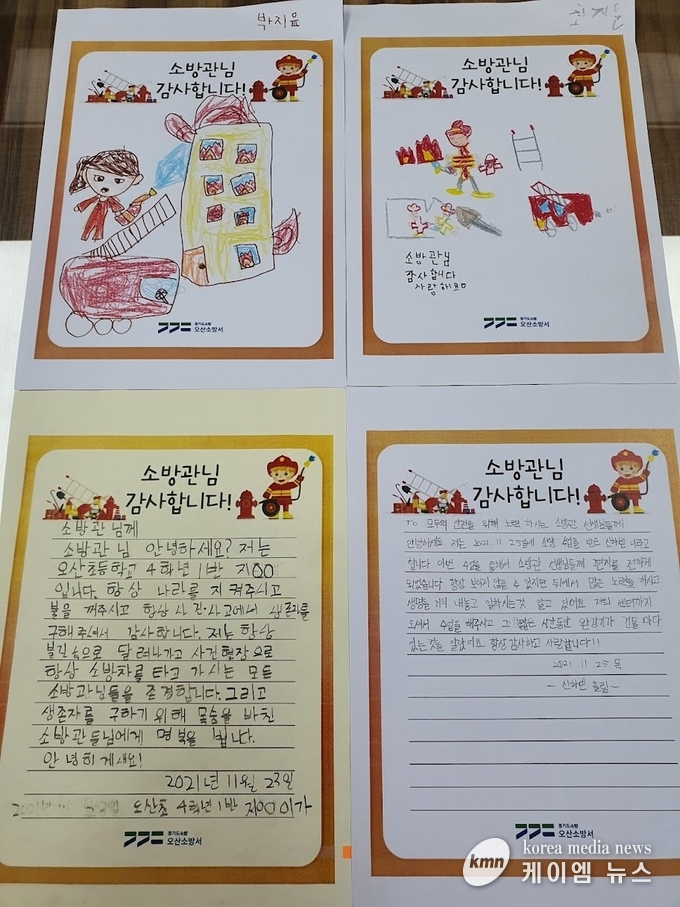 박지윤
소방관님
감사합니다!
경기도소방
오산소방서
최지윤
소방관님
감사합니다!
소방관님
감사합니다
사랑해요
경기도소방
오산소방서
소방관님
감사합니다!
소방관님께
소방관님 안녕하세요? 저는
오산초등학교 4학년 1반 지00
입니다. 항상 나라를 지켜주시고
불을 꺼주시고 항상 사건·사고에서 생존자를
구해주셔서 감사합니다. 저는 항상
불길 속으로 달려나가고 사건현장으로
항상 소방차를 타고 가시는 모든
소방관님들을 존경합니다. 그리고
생존자를 구하기 위해 목숨을 바친
소방관들님에게 명복을 빕니다.
안녕히계세요!
2021년 11월 23일
오산초 4학년 1반 지00 이가
경기도소방
오산소방서
소방관님
감사합니다!
To. 모두의 안전을 위해 노력 하시는 소방관 선생님들께
안녕하세요 저는 2021 11 25일에 소방 수업을 받은 신하민 이라고
합니다 이번 수업을 통해서 소방관 선생님들께 편지를 전하게
되었습니다 항상 보이지 않을 수 있지만 뒤에서 많은 노력을 하시고
생명을 거의 내놓고 일하시는것 알고 있어요 저희 센터까지
오셔서 수업을 해주시고 그 짧은 시간동안 완강기가 건물 마다
있는것을 알았어요 항상 감사하고 사랑합니다!!
2021 11 25 목
- 신하민 올림 -
경기도소방
오산소방서
kmn korea media news
케이엠 뉴스